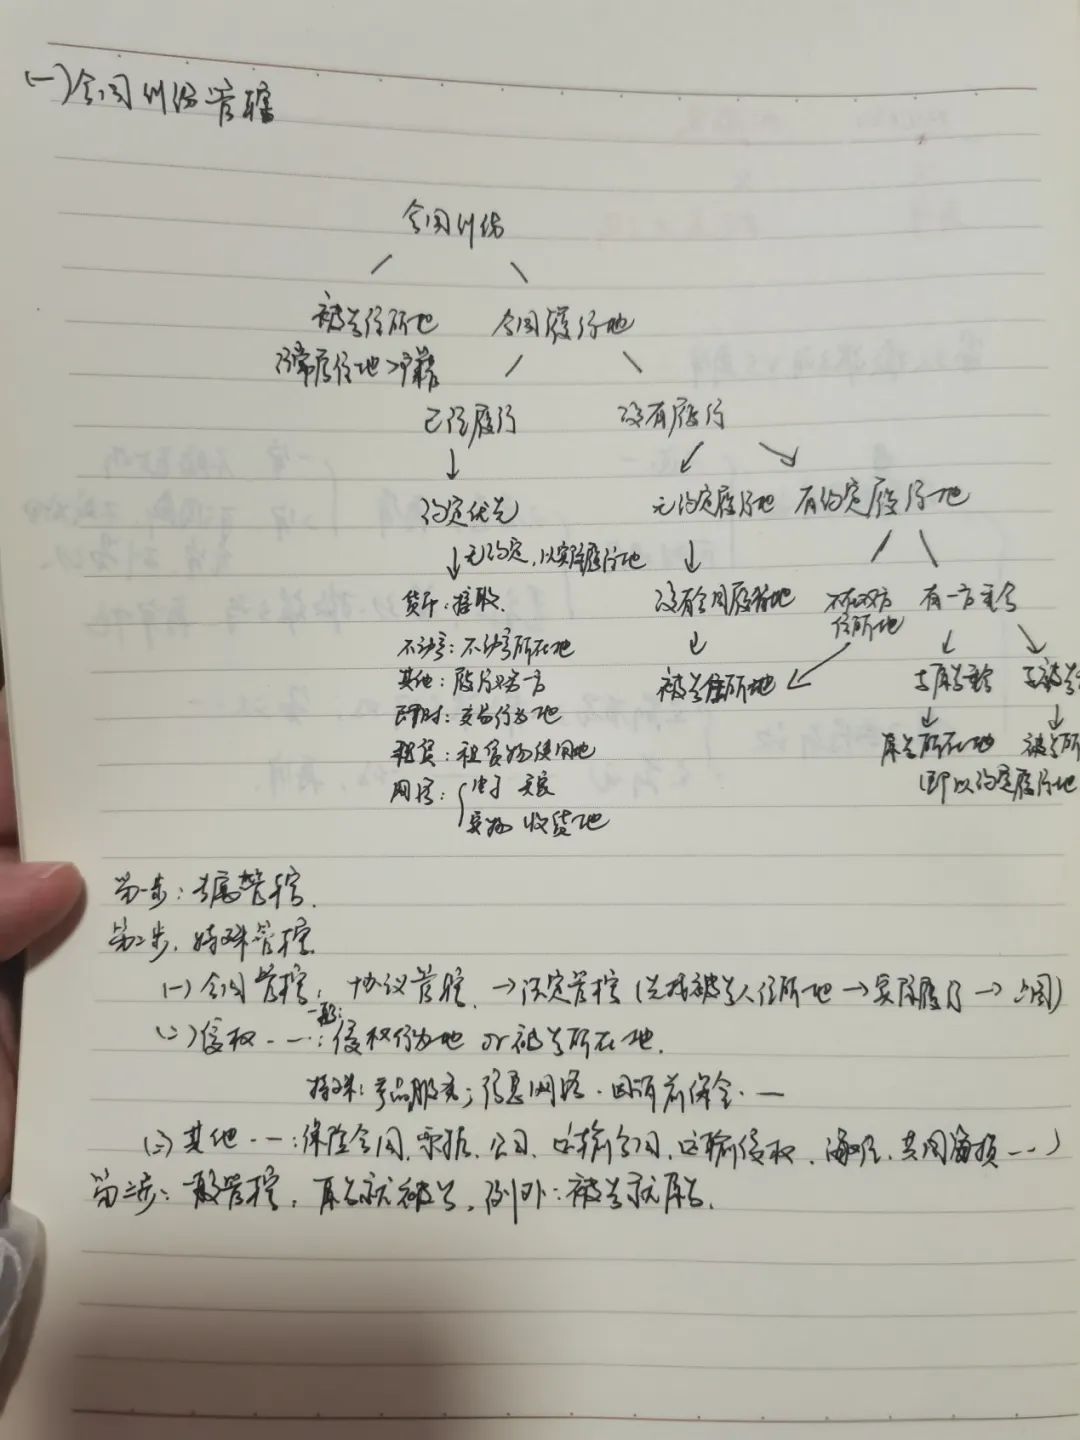 (一)合同纠纷管辖
合同纠纷
被告住所地 合同履行地
经常居住地>户籍
已经履行 没有履行
约定优先 无约定履行地 有约定履行地
无约定,以实际履行地
货币:接收 没有合同履行地 不在双方住所地 有一方重合
不动产:不动产所在地
其他:履行义务一方 被告住所地 与原告重合 与被告
即时:交易行为地
租赁:租赁物使用地 原告所在地 被告所
网络: 电子 买家 (即以约定履行地
实物 收货地
第一步:专属管辖.
第二步.特殊管辖.
(一)合同管辖: 协议管辖.→法定管辖(先找被告人住所地→实际履行→合同)
(二)侵权..一般:侵权行为地 or 被告所在地.
特殊:产品服务;信息网络.因诉前保全.一
(三)其他..一:保险合同.票据.公司.运输合同.运输侵权.海难.共同海损...)
第三步:一般管辖,原告就被告,例外:被告就原告.